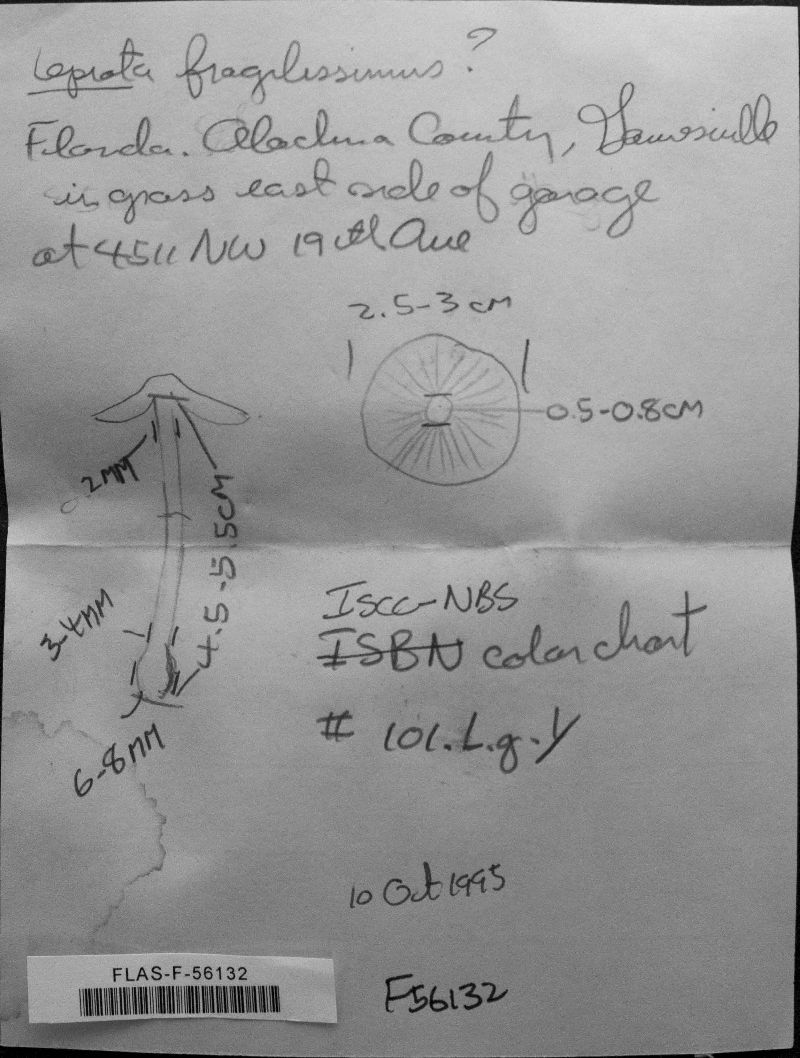 Lepiota fragilissimus?
Florida. Alachua County, Gainesville
in grass east side of garage
at 4511 NW 19th Ave
2.5-3 cm
0.5-0.8cm
2MM
4.5-5.5CM
3-4MM
6-8MM
ISCC-NBS
ISBN color chart
# 101.L.g.Y
10 Oct 1995
FLAS-F-56132
F56132